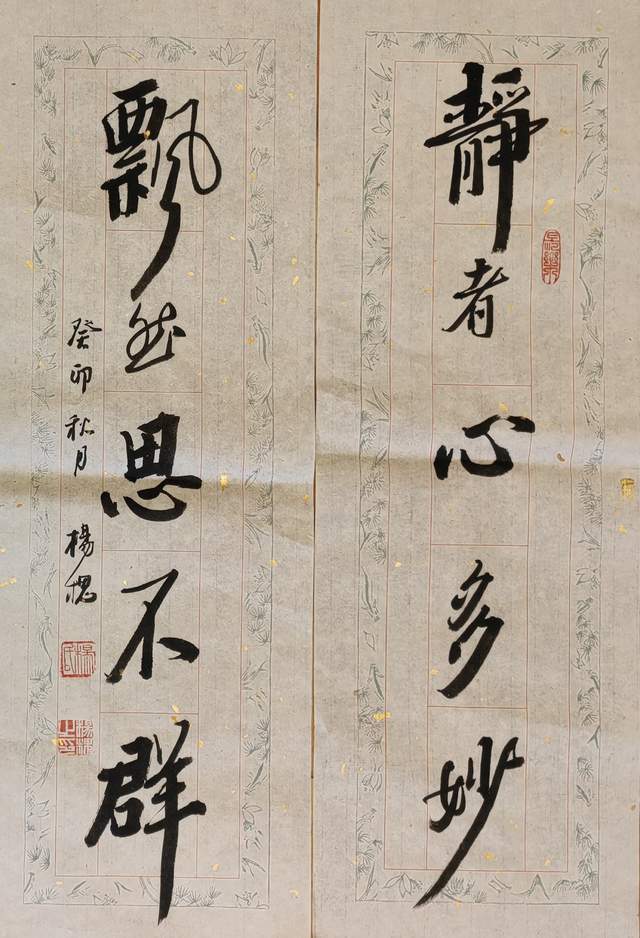 靜者心多妙
飄然思不群
癸卯秋月
楊